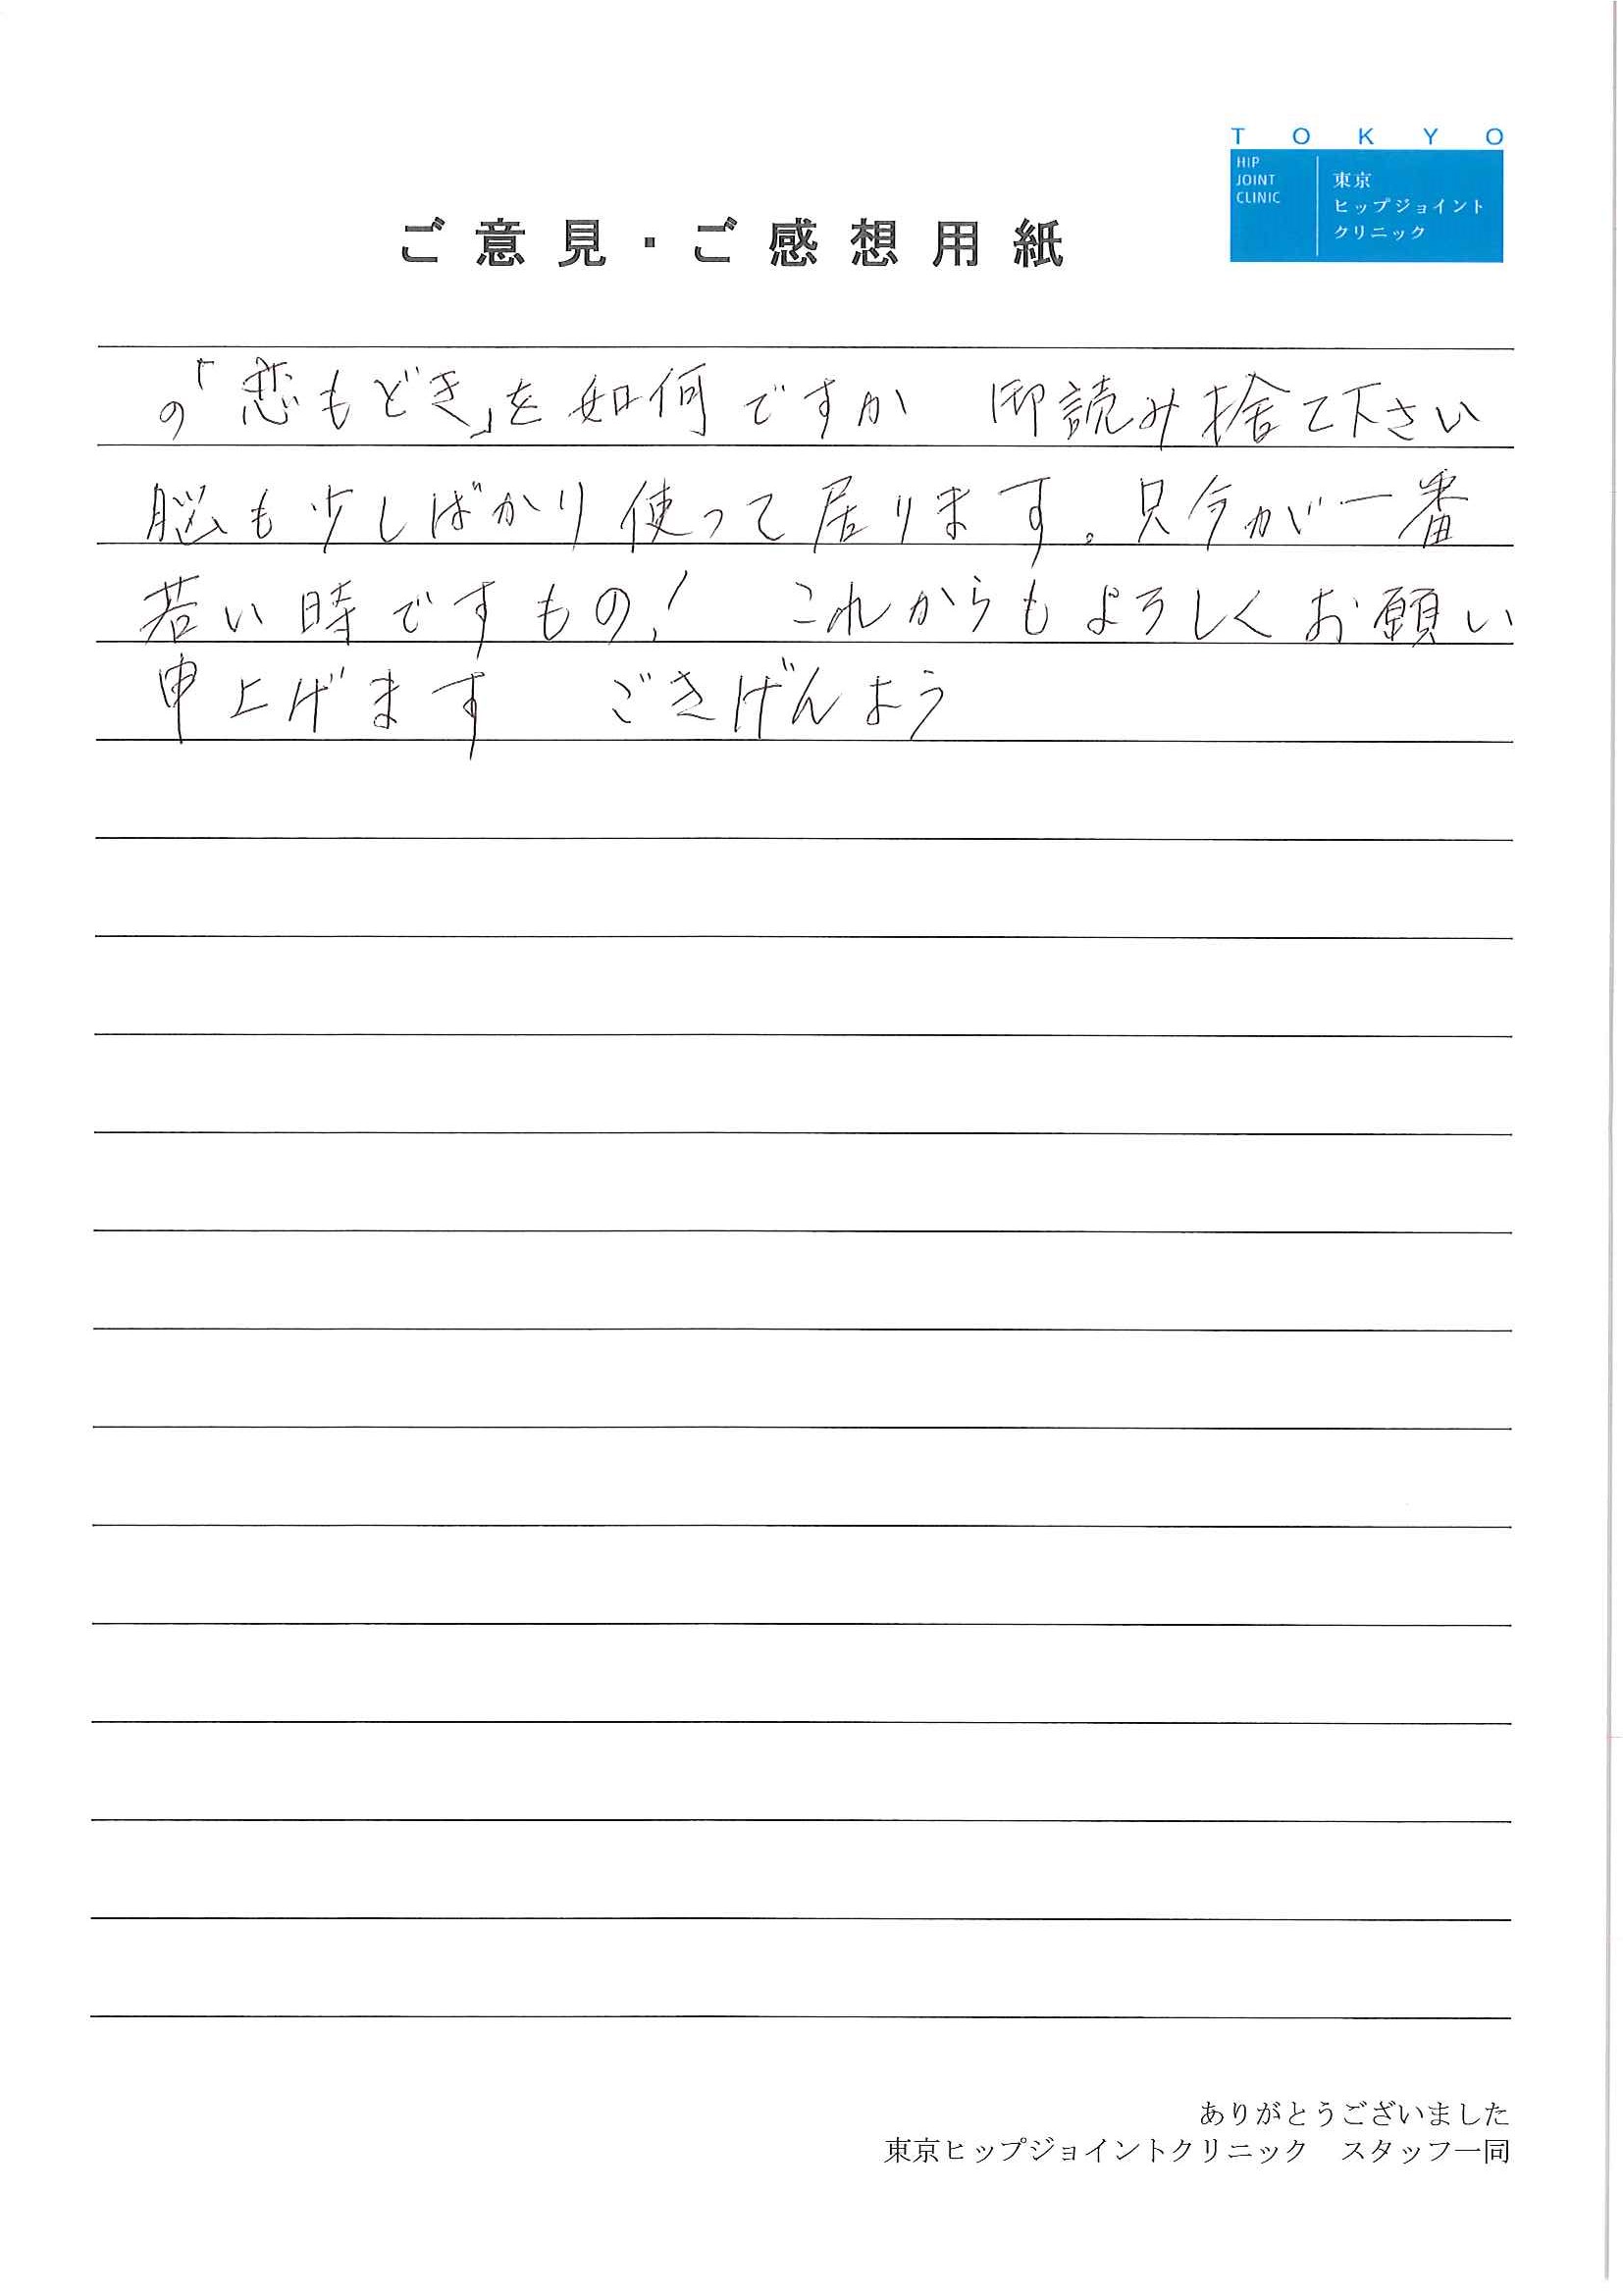 TOKYO
HIP
JOINT
CLINIC
東京
ヒップジョイント
クリニック
ご意見・ご感想用紙
の「恋もどき」を如何ですか　即読み捨て下さい
脳も少しばかり使って居ります。只今が一番
若い時ですもの!　これからもよろしくお願い
申上げます　ごきげんよう
ありがとうございました
東京ヒップジョイントクリニック　スタッフ一同